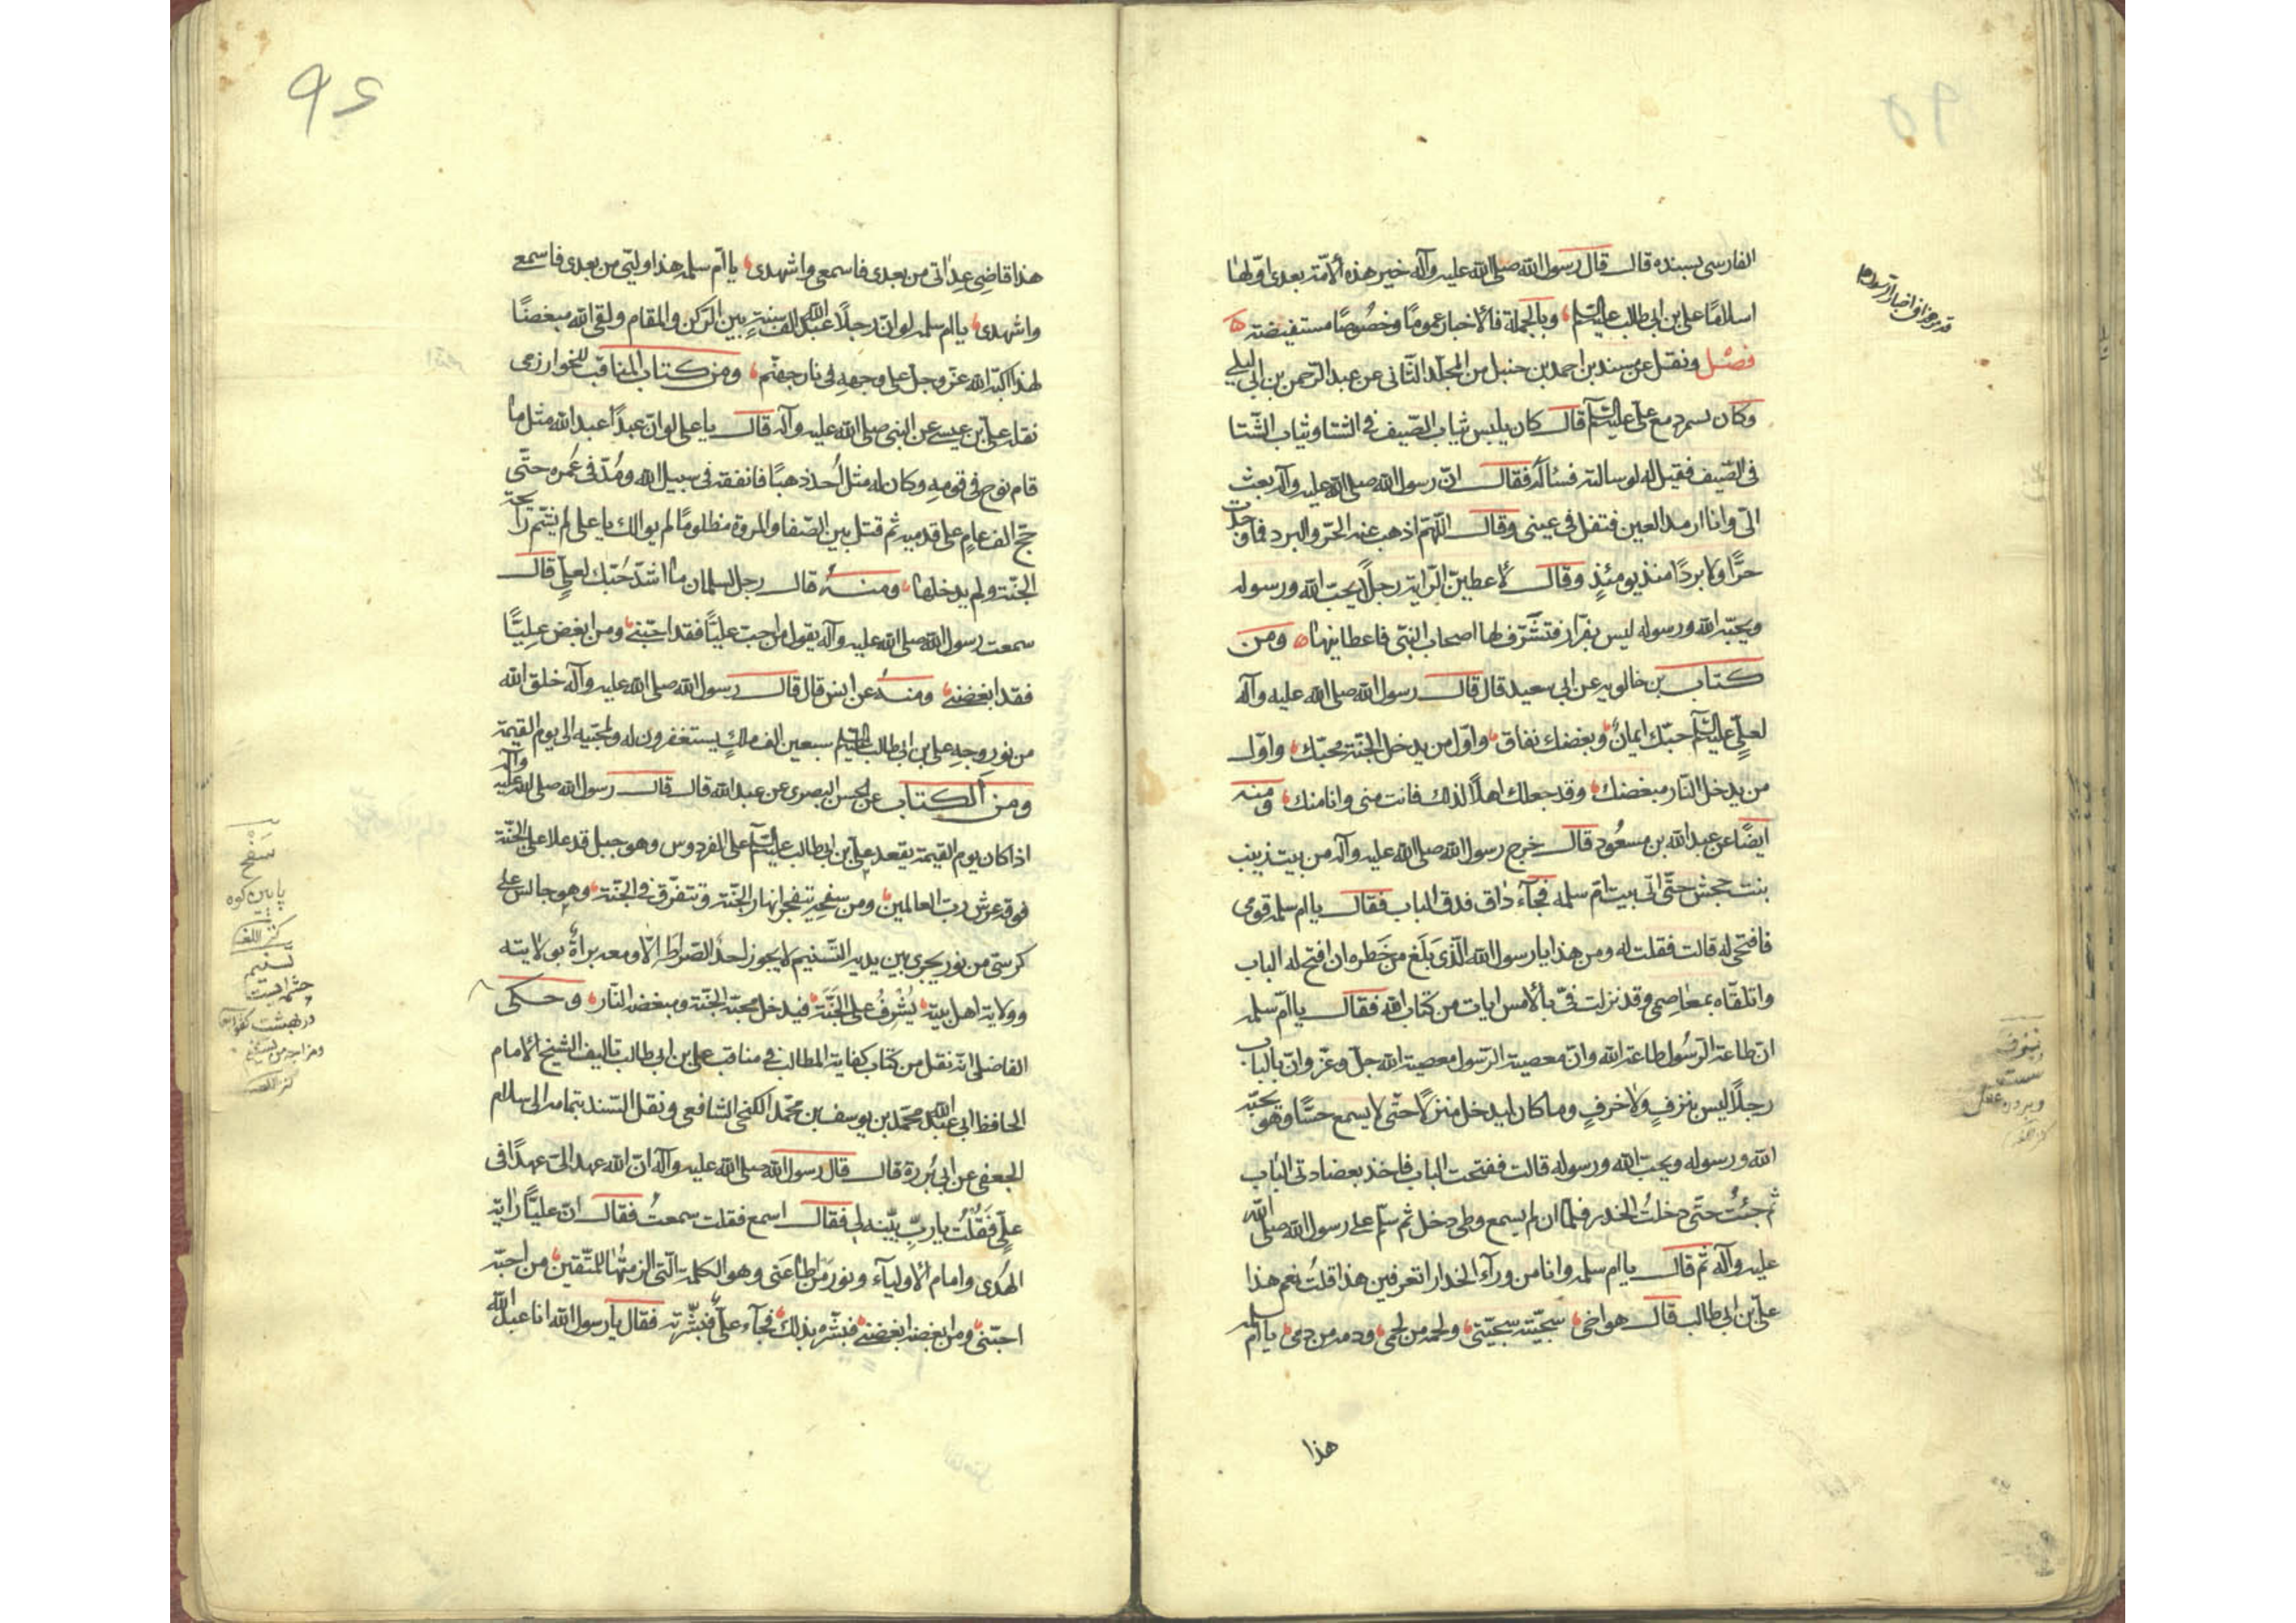 الفارسى بسنده قال قال رسول الله صلى الله عليه وآله خير هذه الأمّة بعدى اوّلها
اسلامًا على بن ابى طالب عليه السّلم وبالجملة فالأخبار عمومًا وخصُوصًا مستفيضة
فصْل ونقل عن مسند بن احمد بن حنبل من المجلّد الثّانى عن عبد الرّحمن بن ابى ليلى
وكان يسمر مع علىّ عليه السّلم قال كان يلبس ثياب الصّيف فى الشتا وثياب الشّتا
فى الصّيف فقيل له لو سالته فساله فقال انّ رسول الله صلى الله عليه وآله بعث
الىّ وانا ارمد العين فتفل فى عينى وقال اللّهمّ اذهب عنه الحرّ والبرد فما وجدت
حرًّا ولا بردًا منذ يومئذٍ وقال لأعطينّ الرّاية رجلًا يحبّ الله ورسوله
ويحبّه الله ورسوله ليس بفرّار فتشرّف لها اصحاب النبّى فاعطانيها ومن
كتاب بن خالويه عن ابى سعيد قال قال رسول الله صلى الله عليه وآله
لعلىّ عليه السّلم حبّك ايمانٌ وبغضك نفاق واوّل من يدخل الجنّة محبّك واوّل
من يدخل النّار مبغضك وقد جعلك اهلًا لذلك فانت منى وانا منك ومنه
ايضًا عن عبد الله بن مسعُود قال خرج رسول الله صلى الله عليه وآله من بيت زينب
بنت جحش حتّى اتى بيت امّ سلمه فجآء داق فدق الباب فقال يا ام سلمه قومى
فافتحى له قالت فقلت له ومن هذا يا رسول الله الّذى بَلَغ من خَطره ان افتح له الباب
واتلقّاه بمعاصمى وقد نزلت فىّ بالأمس ايات من كتاب الله فقال يا امّ سلمه
ان طاعة الرّسُول طاعة الله وانّ معصية الرّسول معصية الله جلّ وعزّ وانّ بالباب
رجلًا ليس بنزفٍ ولا خرفٍ وما كان ليدخل منزلًا حتّى لا يسمع حسًّا وهو يحبّه
الله ورسوله ويحبّ الله ورسوله قالت ففتحت الباب فاخذ بعضادتى الباب
ثم جئتُ حتّى دخلتُ الخدر فلمّا ان لم يسمع وطى دخل ثم سلّم على رسول الله صلى الله
عليه وآله ثم قال يا ام سلمه وانا من ورآء الخدار اتعرفين هذا قلتُ نعم هذا
علىّ بن ابى طالب قال هو اخى سجيّته سجيّتى ولحمه من لحمى ودمه من دمى يا امّ سلمه
هذا
هذا قاضى عِداتى من بعدى فاسمعى واشهدى يا امّ سلمه هذا وليّى من بعدى فاسمعى
واشهدى يا ام سلمه لو انّ رجلًا عبد الله الف سنةٍ بين الرّكن والمقام ولقى الله مبغضًا
لهذا اكبّه الله عزّ وجلّ على وجهه فى نار جهنّم ومن كتاب المناقب للخوارزمى
نقله على بن عيسى عن النبى صلى الله عليه وآله قال يا على لو انّ عبدًا عبد الله مثل ما
قام نوح فى قومه وكان له مثل اُحد ذهبًا فانفقه فى سبيل الله ومُدّ فى عُمره حتّى
حجّ الف عامٍ على قدميه ثم قتل بين الصّفا والمروة مظلومًا لم يوالك يا على لم يشمّ رايحة
الجنّة ولم يدخلها ومنهُ قال رجل لسلمان ما اشدّ حُبّك لعلىٍّ قال
سمعت رسول الله صلى الله عليه وآله يقول من احبّ عليًّا فقد احبّنى ومن ابغض عليًّا
فقد ابغضنى ومنهُ عن انس قال قال رسول الله صلى الله عليه وآله خلق الله
من نور وجه على بن ابى طالب عليه السّلم سبعين الف ملكٍ يستغفرون له ولمحبّيه الى يوم القيمة
ومن الكتاب عن الحسن البصرى عن عبد الله قال قال رسول الله صلى الله عليه وآله
اذا كان يوم القيمة يقعد علىّ بن ابى طالب عليه السّلم على الفردوس وهو جبل قد علا على الجنّة
فوقه عرش ربّ العالمين ومن سفحه يتفجر انهار الجنّة وتتفرّق فى الجنّة وهو جالس على
كرسىّ من نور يجرى بين يديه التّسنيم لا يجوز احدٌ الصّراط الّا ومعه برأةٌ بولايته
وولاية اهل بيته يُشْرِفُ على الجَنَّة فيدخل محبّه الجنّة ومبغضه النّار وحكى
الفاضل انّه نقل من كتاب كفاية المطالب فى مناقب على بن ابى طالب تاليف الشيخ الأمام
الحافظ ابى عبد الله محمّد بن يوسف بن محمّد الكنجى الشافعى ونقل السّند بتمامه الى سلام
الجعفى عن ابى بُرزة قال قال رسول الله صلى الله عليه وآله انّ الله عهد الىّ عهدًا فى
علىٍّ فَقُلْتُ يا ربِّ بيّنه لى فقال اسمع فقلت سمعتُ فقال انّ عليًّا رايةُ
الهُدى وامام الأولياء ونور من اطاعنى وهو الكلمة الّتى الزمتُها للمتّقين من احبّه
احبّنى ومن ابغضه ابغضنى فبشّره بذلك فجآء علىٌّ فبشّرته فقال يا رسول الله انا عبد الله
سَفح
پايين كوه
كنز اللغه
تسنيم